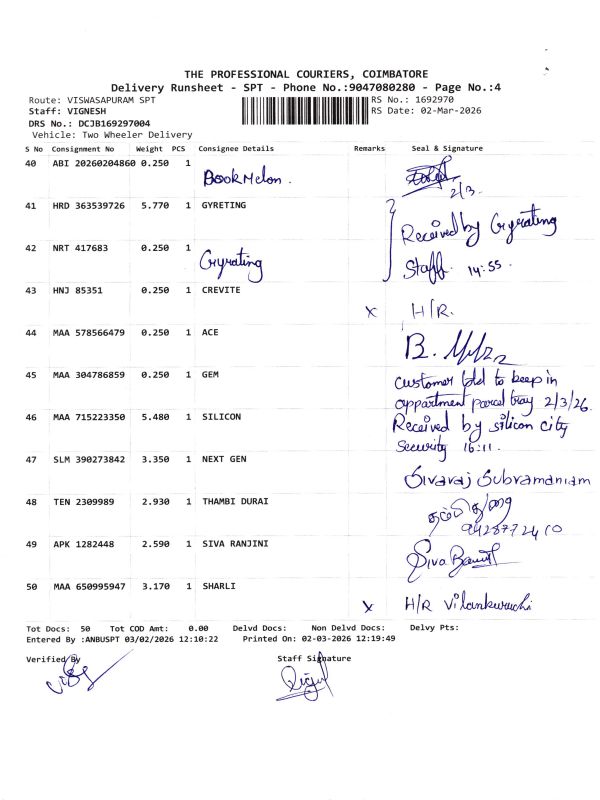 THE PROFESSIONAL COURIERS, COIMBATORE
Delivery Runsheet - SPT - Phone No.:9047080280 - Page No.:4
Route: VISWASAPURAM SPT
RS No.: 1692970
Staff: VIGNESH
RS Date: 02-Mar-2026
DRS No.: DCJB169297004
Vehicle: Two Wheeler Delivery
S No Consignment No Weight PCS Consignee Details Remarks Seal & Signature
40 ABI 20260204860 0.250 1
BookMelon.
2/3.
41 HRD 363539726 5.770 1 GYRETING
Received by Gyrating
42 NRT 417683 0.250 1
Gyrating
Staff. 14:55.
43 HNJ 85351 0.250 1 CREVITE
x H/R.
44 MAA 578566479 0.250 1 ACE
45 MAA 304786859 0.250 1 GEM
Customer told to keep in
appartment parcel tray 2/3/26.
46 MAA 715223350 5.480 1 SILICON
Received by silicon city
Security 16:11.
47 SLM 390273842 3.350 1 NEXT GEN
Sivaraj Subramaniam
48 TEN 2309989 2.930 1 THAMBI DURAI
49 APK 1282448 2.590 1 SIVA RANJINI
50 MAA 650995947 3.170 1 SHARLI
x H/R Vilankuruchi
Tot Docs: 50 Tot COD Amt: 0.00 Delvd Docs: Non Delvd Docs: Delvy Pts:
Entered By :ANBUSPT 03/02/2026 12:10:22 Printed On: 02-03-2026 12:19:49
Verified By
Staff Signature